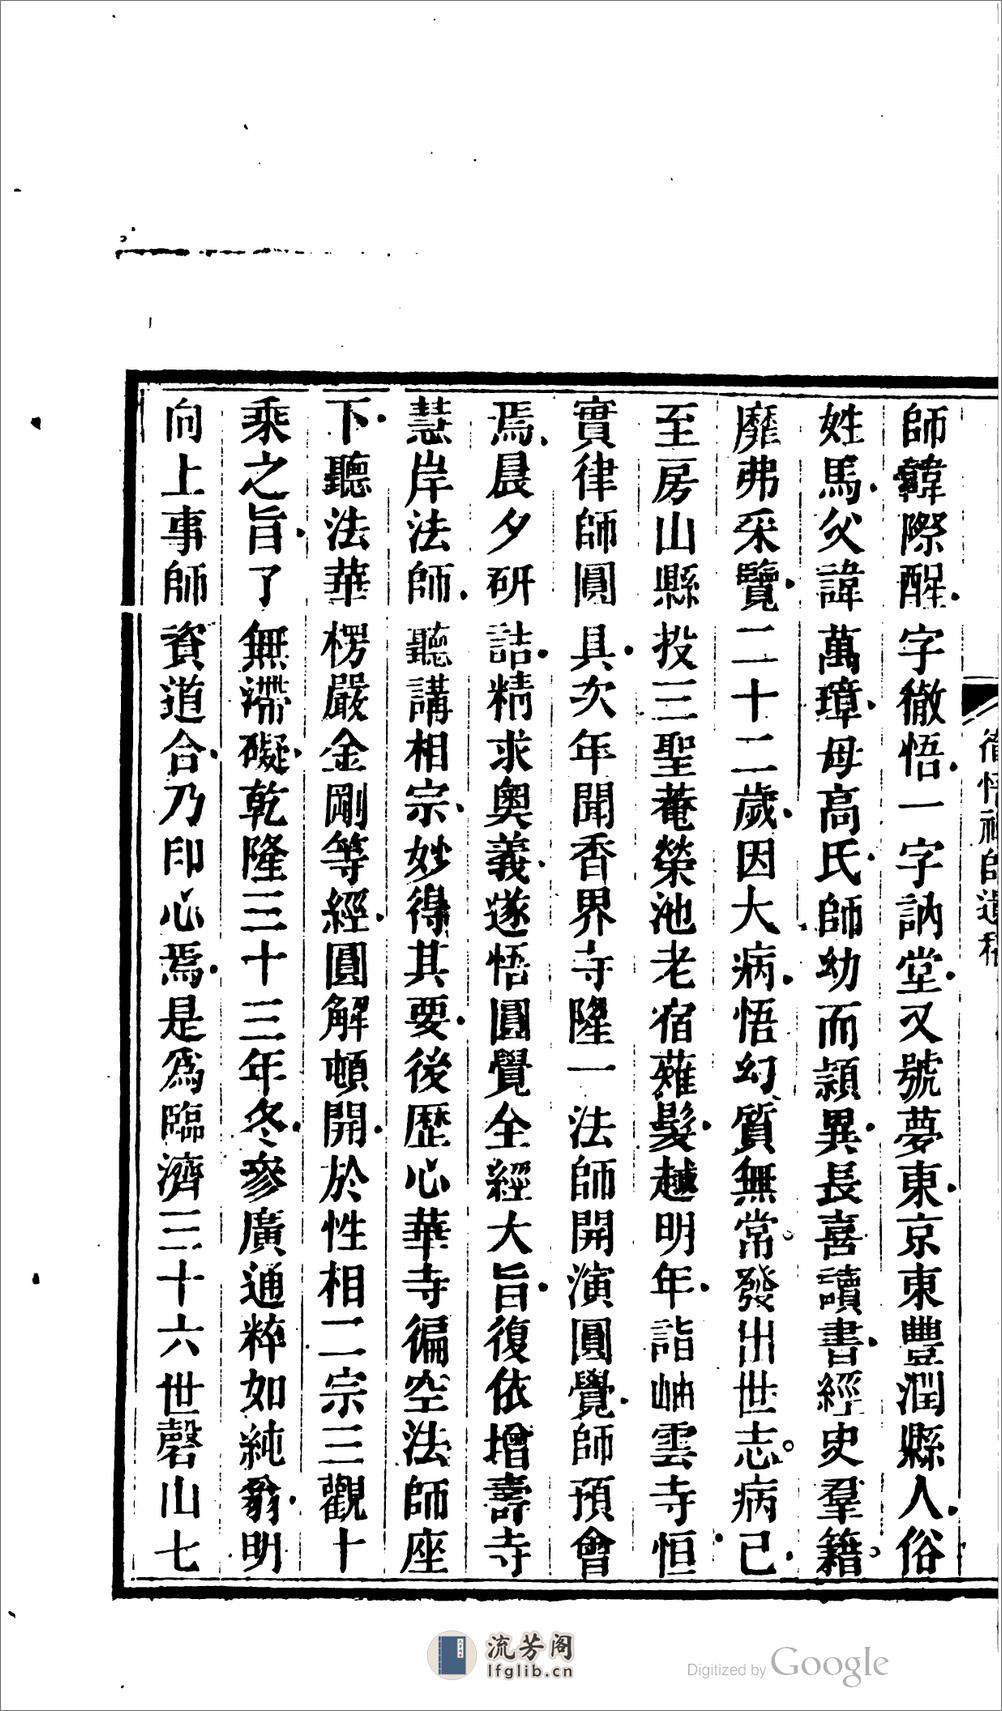 師諱際醒字徹悟一字訥堂又號夢東京東豐潤縣人俗
姓馬父諱萬璋母高氏師幼而頴異長喜讀書經史羣籍
靡弗采覽二十二歲因大病悟幻質無常發出世志病已
至房山縣投三聖菴榮池老宿薙髮越明年詣岫雲寺恒
實律師圓具次年聞香界寺隆一法師開演圓覺師預會
焉晨夕研詰精求奧義遂悟圓覺全經大旨復依增壽寺
慧岸法師聽講相宗妙得其要後歷心華寺徧空法師座
下聽法華楞嚴金剛等經圓解頓開於性相二宗三觀十
乘之旨了無滯礙乾隆三十三年冬參廣通粹如純翁明
向上事師資道合乃印心焉是爲臨濟三十六世磬山七
流芳阁
lfglib.cn
Digitized by Google